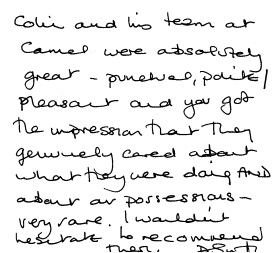 Colin and his team at
Camel were absolutely
great - punctual, polite,
pleasant and you got
the impression that they
genuinely cared about
what they were doing AND
about our possessions -
very rare. I wouldn't
hesitate to recommend
them.